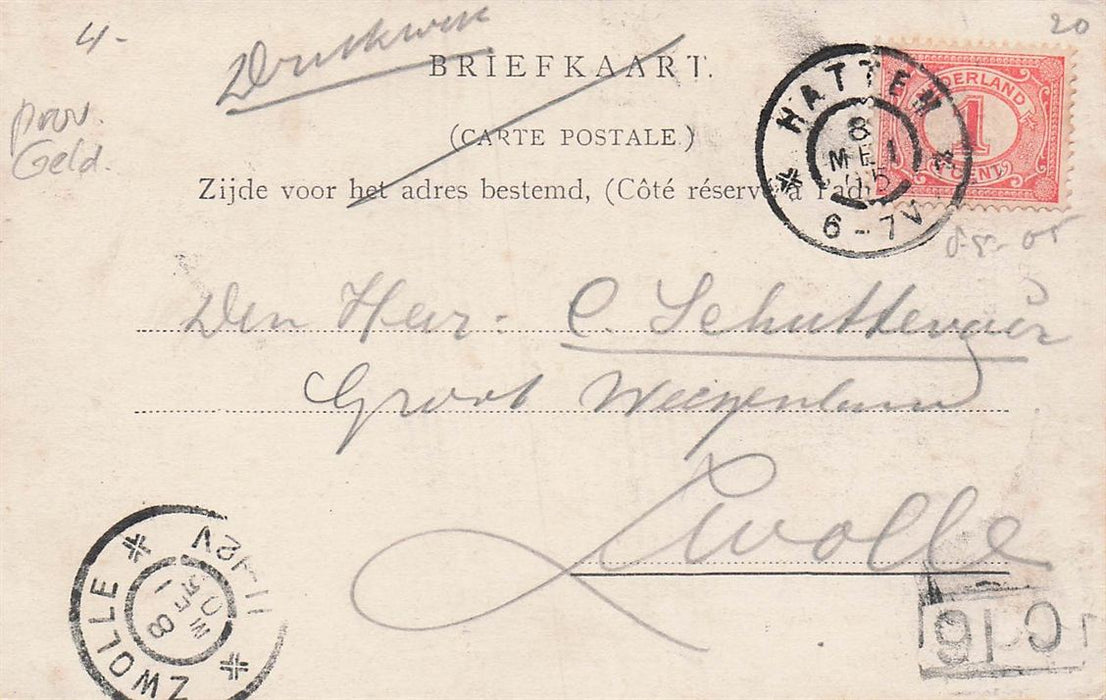 4.-
20
Drukwerk
BRIEFKAART.
(CARTE POSTALE.)
Zijde voor het adres bestemd, (Côté réservé à l'ad
prov.
Geld.
HATTEM
8
MEI
05
6-7V
NEDERLAND
1
CENT
8-5-05
Den Heer C. Schuttevaer
Groot Weezenland
Zwolle
ZWOLLE
8
11-12V